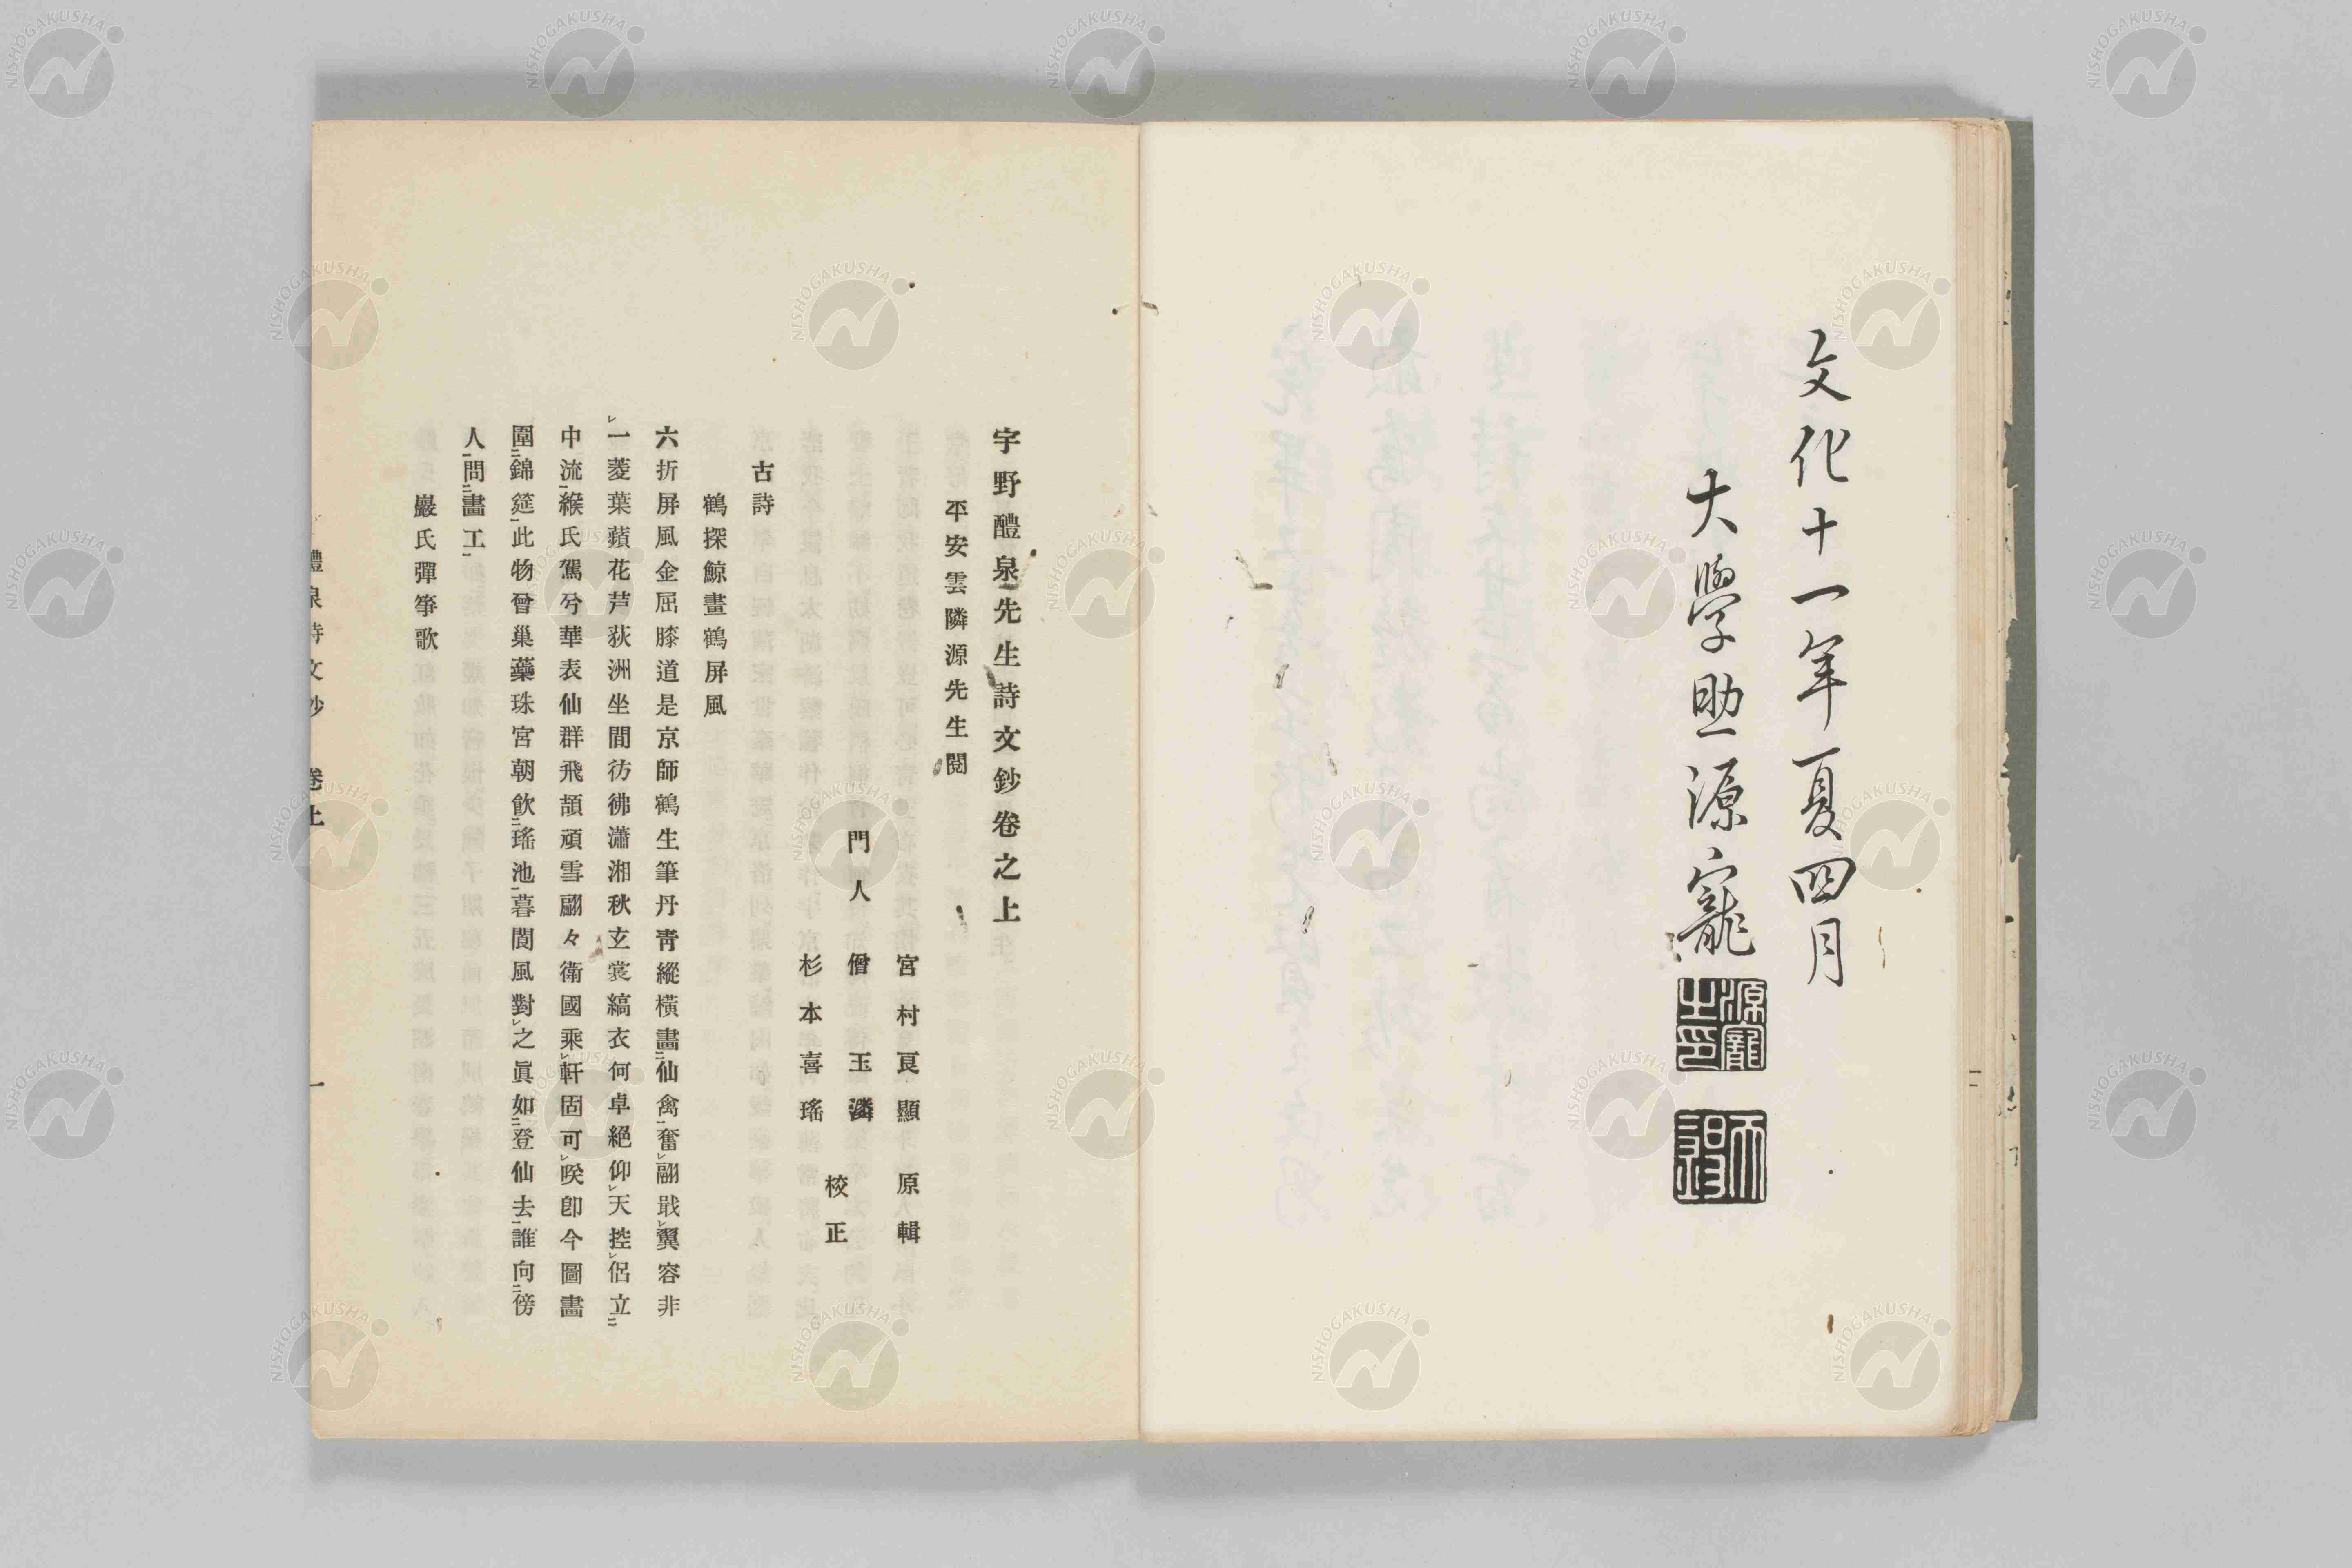 文化十一年夏四月
大學助源寵
源寵之印
天爵
宇野醴泉先生詩文鈔卷之上
平安雲隣源先生閱
宮村良顯原輯
門人 僧玉潾 校正
杉本喜瑤
古詩
鶴探鯨畫鶴屏風
六折屏風金屈膝道是京師鶴生筆丹靑縱橫畫二仙禽一奮レ翮戢レ翼容非
レ一菱葉蘋花芦荻洲坐間彷彿瀟湘秋玄裳縞衣何卓絕仰レ天控レ侶立二
中流一緱氏駕兮華表仙群飛頡頏雪翩々衛國乘レ軒固可レ唉卽今圖畫
圍二錦筵一此物曾巢蘂珠宮朝飮二瑤池一暮閬風對レ之眞如二登仙去一誰向二傍
人一問二畫工一
巖氏彈箏歌
醴泉詩文鈔 卷上 一
NISHOGAKUSHA